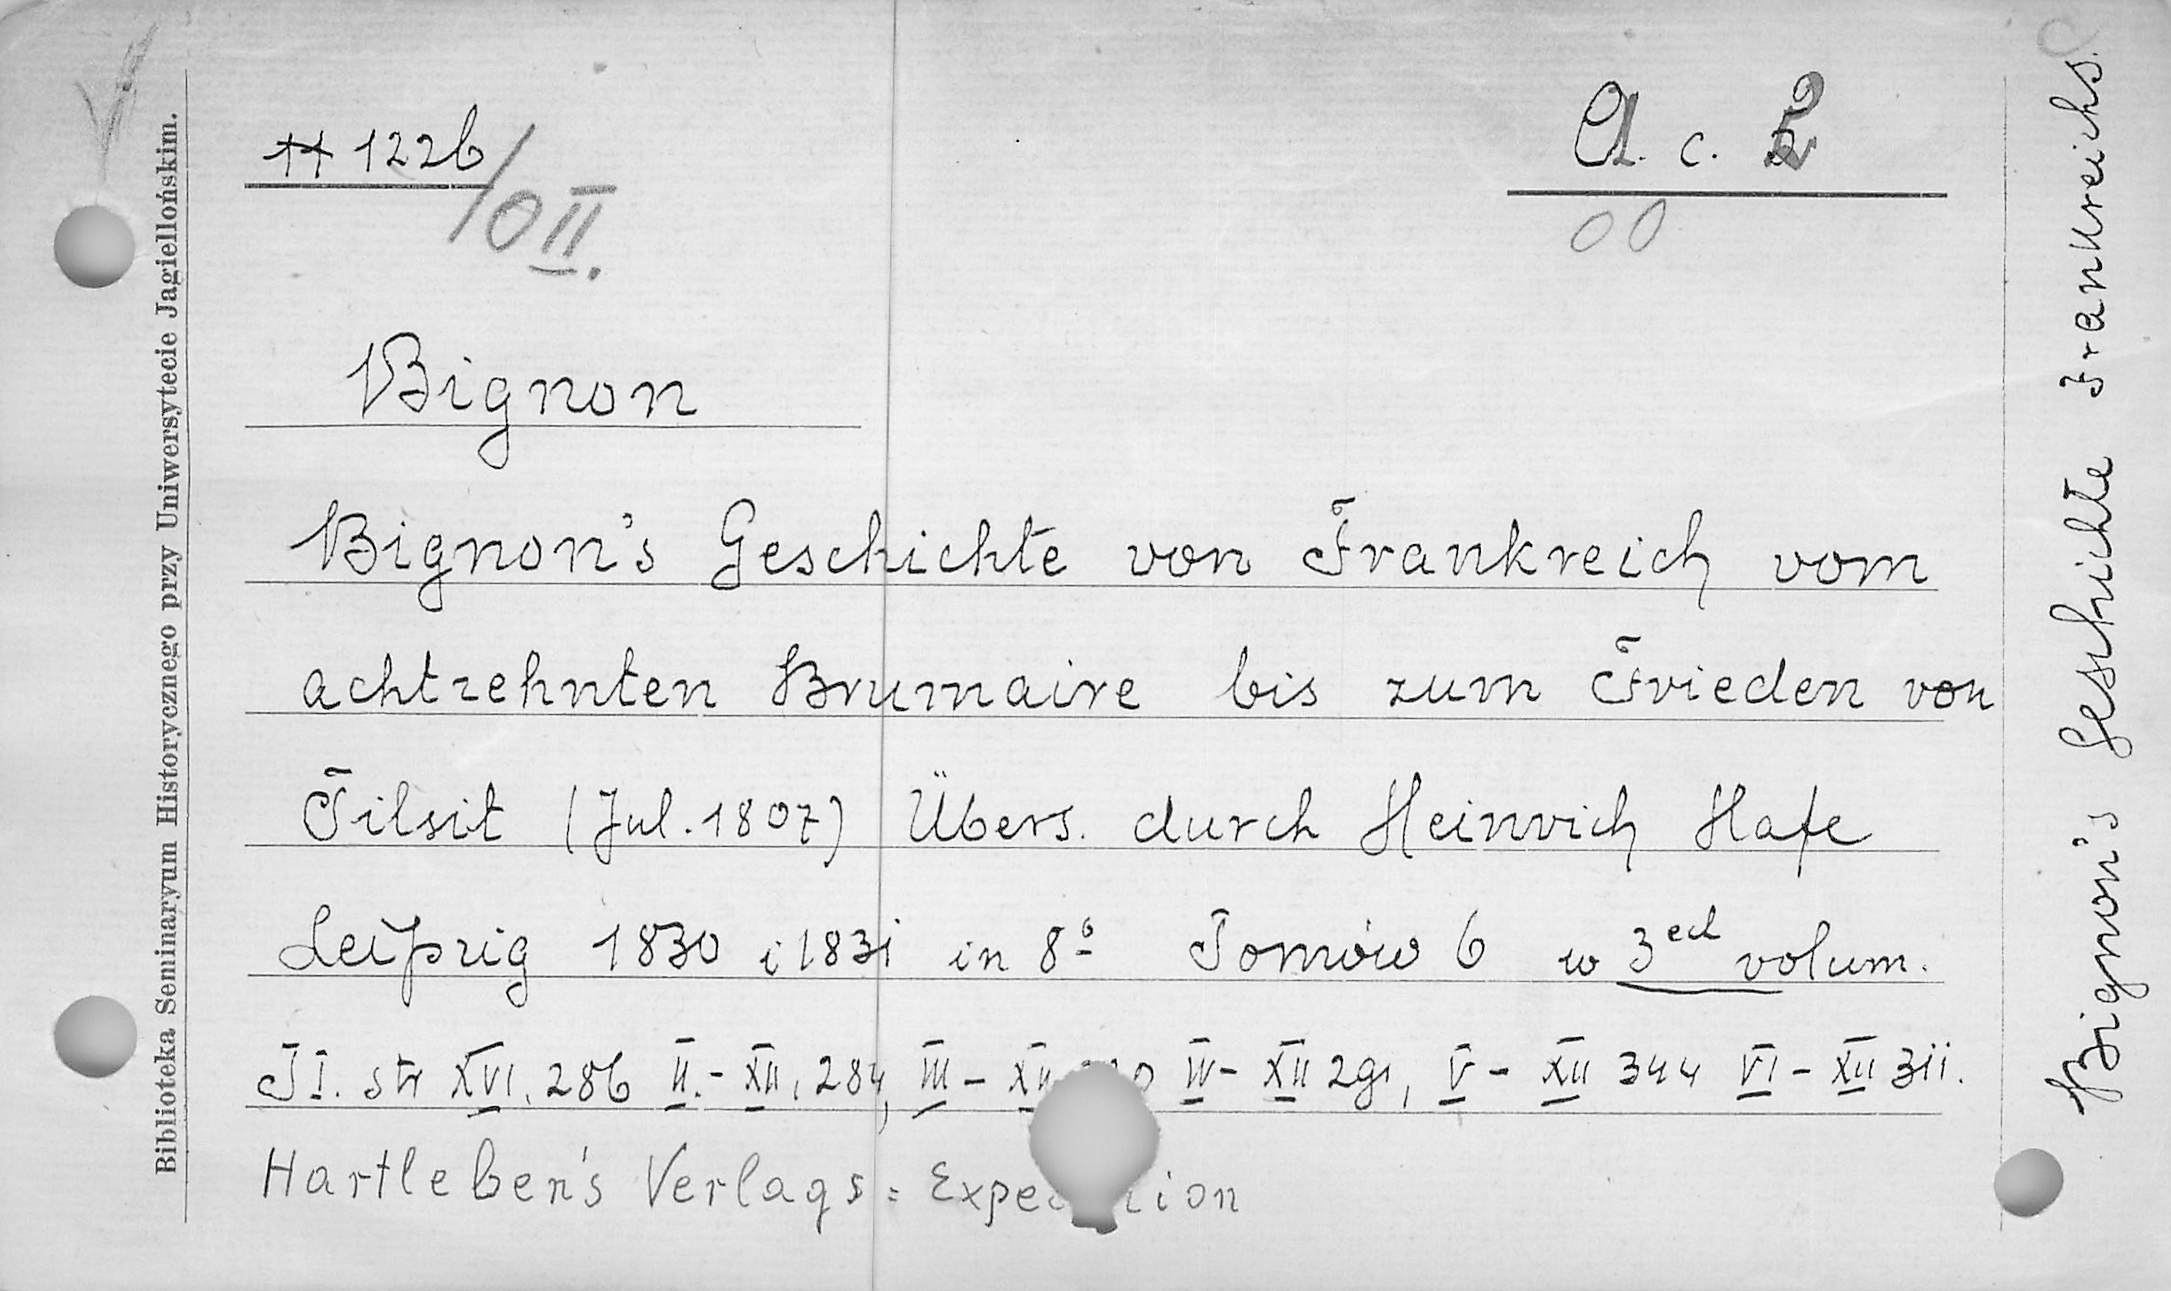 Biblioteka Seminaryum Historycznego przy Uniwersytecie Jagiellońskim.
1226/0 II.
A. c.
00
Bignon
Bignon's Geschichte von Frankreich vom
achtzehnten Brumaire bis zum Frieden von
Tilsit (Jul. 1807) Übers. durch Heinrich Hafe
Leipzig 1830 i 1831 in 8º Tomów 6 w 3ech volum.
T I. str XVI, 286 II. - XII, 284, III - IV - XII 291, V - XII 344 VI - XII 311.
Hartleben's Verlags = Expedition
Bignon's Geschichte Frankreichs.